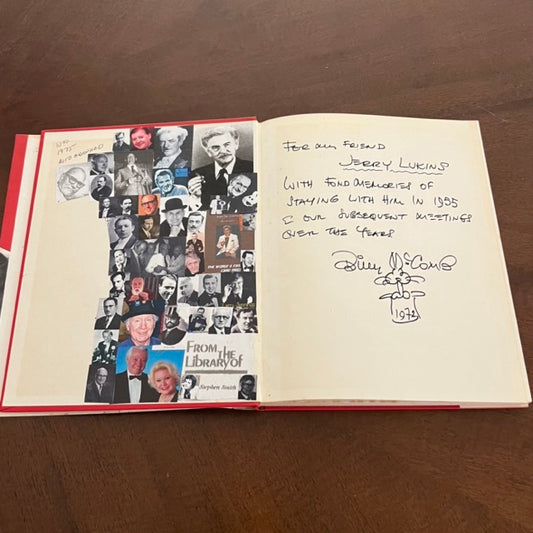 1975
AUTOGRAPHED
THE WORLD'S FIN
FROM
THE
LIBRARY OF
Stephen Smith
FOR MY FRIEND
JERRY LUKINS
WITH FOND MEMORIES OF
STAYING WITH HIM IN 1955
& OUR SUBSEQUENT MEETINGS
OVER THE YEARS
Billy McComb
1972